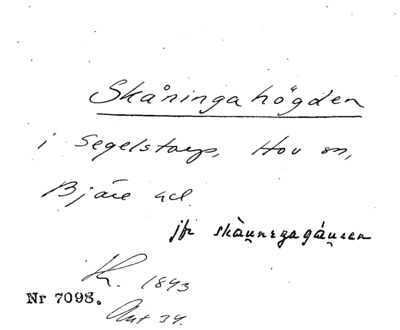 Skåningahögden
i Segelstorp, Hov sn,
Bjäre hd.
jfr
K. 1893
Nr 7098.
Ant 34.